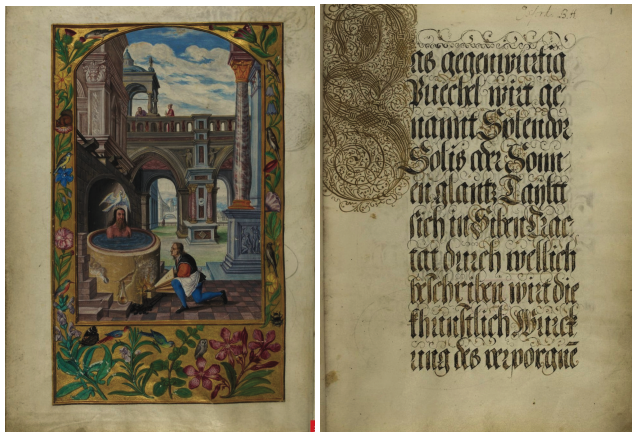 1
Das gegenwurtig
Puechel wirt ge
nannt Splendor
Solis oder Sonn
en glantz Taylt
sich in Siben Trac
tat durch wellich
beschriben wirt die
khunstlich Wurck
ung des verporgnē